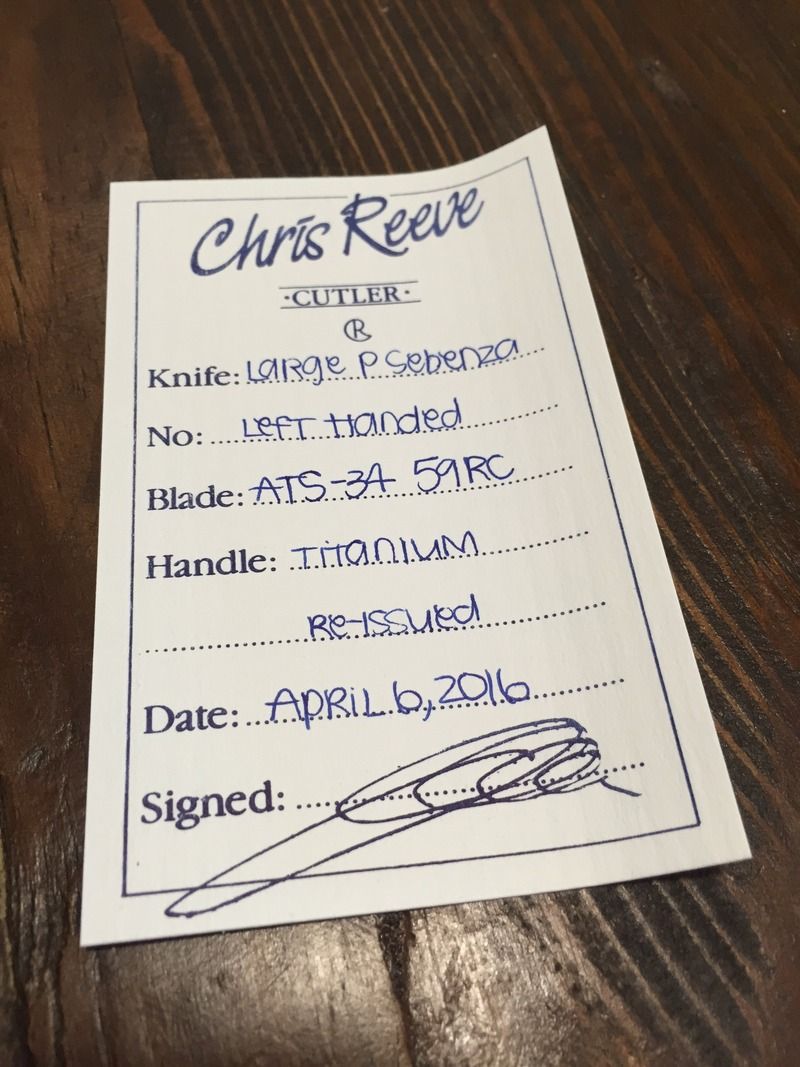 Chris Reeve
·CUTLER·
®
Knife: Large P Sebenza
No: Left Handed
Blade: ATS-34 59RC
Handle: Titanium
Re-Issued
Date: April 6, 2016
Signed: